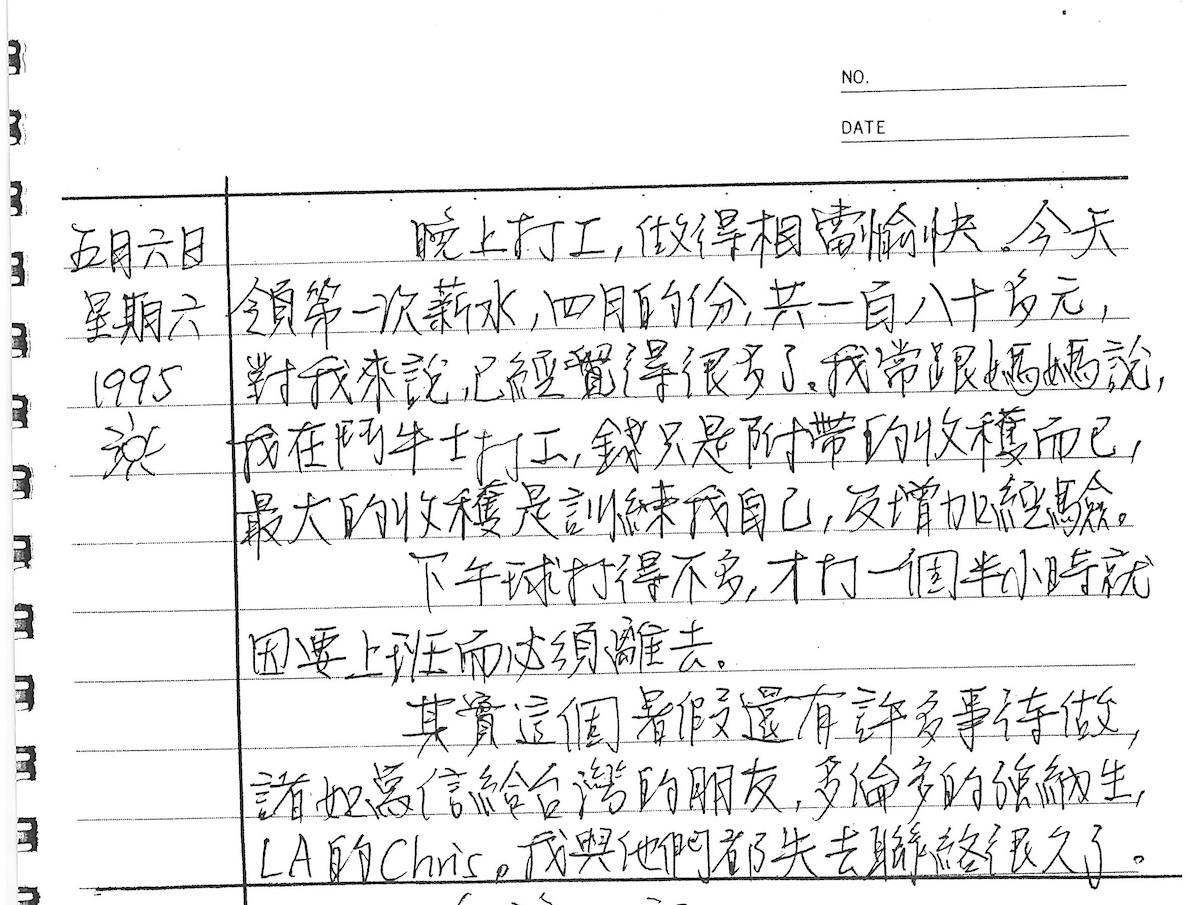 NO.
DATE
五月六日
星期六
1995
晚上打工,做得相當愉快。今天
領第一次薪水,四月的份,共一百八十多元,
對我來說,已經覺得很多了。我常跟媽媽說,
我在鬥牛士打工,錢只是附帶的收穫而已,
最大的收穫是訓練我自己,及增加經驗。
下午球打得不多,才打一個半小時就
因要上班而必須離去。
其實這個暑假還有許多事待做,
諸如寫信給台灣的朋友,多倫多的強納生,
LA的Chris。我與他們都失去聯絡很久了。